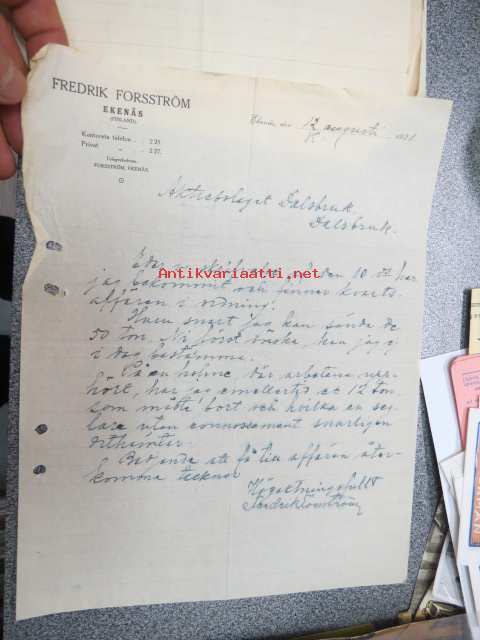 FREDRIK FORSSTRÖM
EKENÄS
(FINLAND)
Kontorets telefon . . 2 25.
Privat „ . . 2 27.
Telegrafadress:
FORSSTRÖM, EKENÄS.
Ekenäs, den 12 augusti 1921
Aktiebolaget Dalsbruk.
Dalsbruk.
Antikvariaatti.net
den 10 ds har
jag bekommit och finner kvarts-
affären i ordning.
Huru snart jag kan sända de
50 ton, Ni först önska, kan jag ej
i dag bestämma.
På en holme, där arbetena upp-
hört, har jag emellertid ca 12 ton
som måste bort och hvilka en seg-
lare utan connossement snarligen
orthämtar.
Bedjande att få till affären åter-
komma tecknar
Högaktningsfullt
Fredrik Forsström